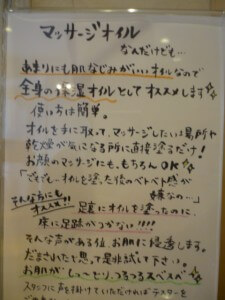 マッサージオイル
なんだけども…
あまりにも肌なじみがいいオイルなので
全身の保湿オイルとしてオススメします
使い方は簡単。
オイルを手に取って、マッサージしたい場所や
乾燥が気になる所に直接塗るだけ!
お顔のマッサージにも、もちろんOK
「でもでも…オイルを塗った後のベトベト感が
嫌なの…」
そんな方にも
オススメ!!
足裏にオイルを塗ったのに、
床に足跡がつかない!!!!
そんな声がある位、お肌に浸透します。
だまされたと思って是非試して下さい。
お肌がしっとり、つるつるスベスベが
スタッフに声を掛けていただければテスターを